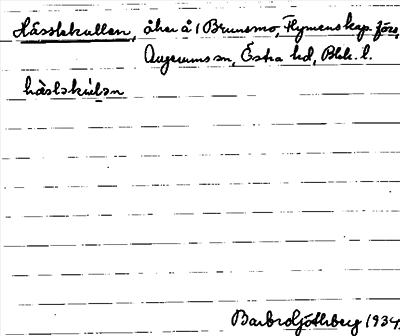 Hässlekullen, åker å 1 Brunsmo, Flymens kap. förs.,
Augerums sn, Östra hd, Blek. l.
hàslakúlən
Barbro Götlsberg 1934.